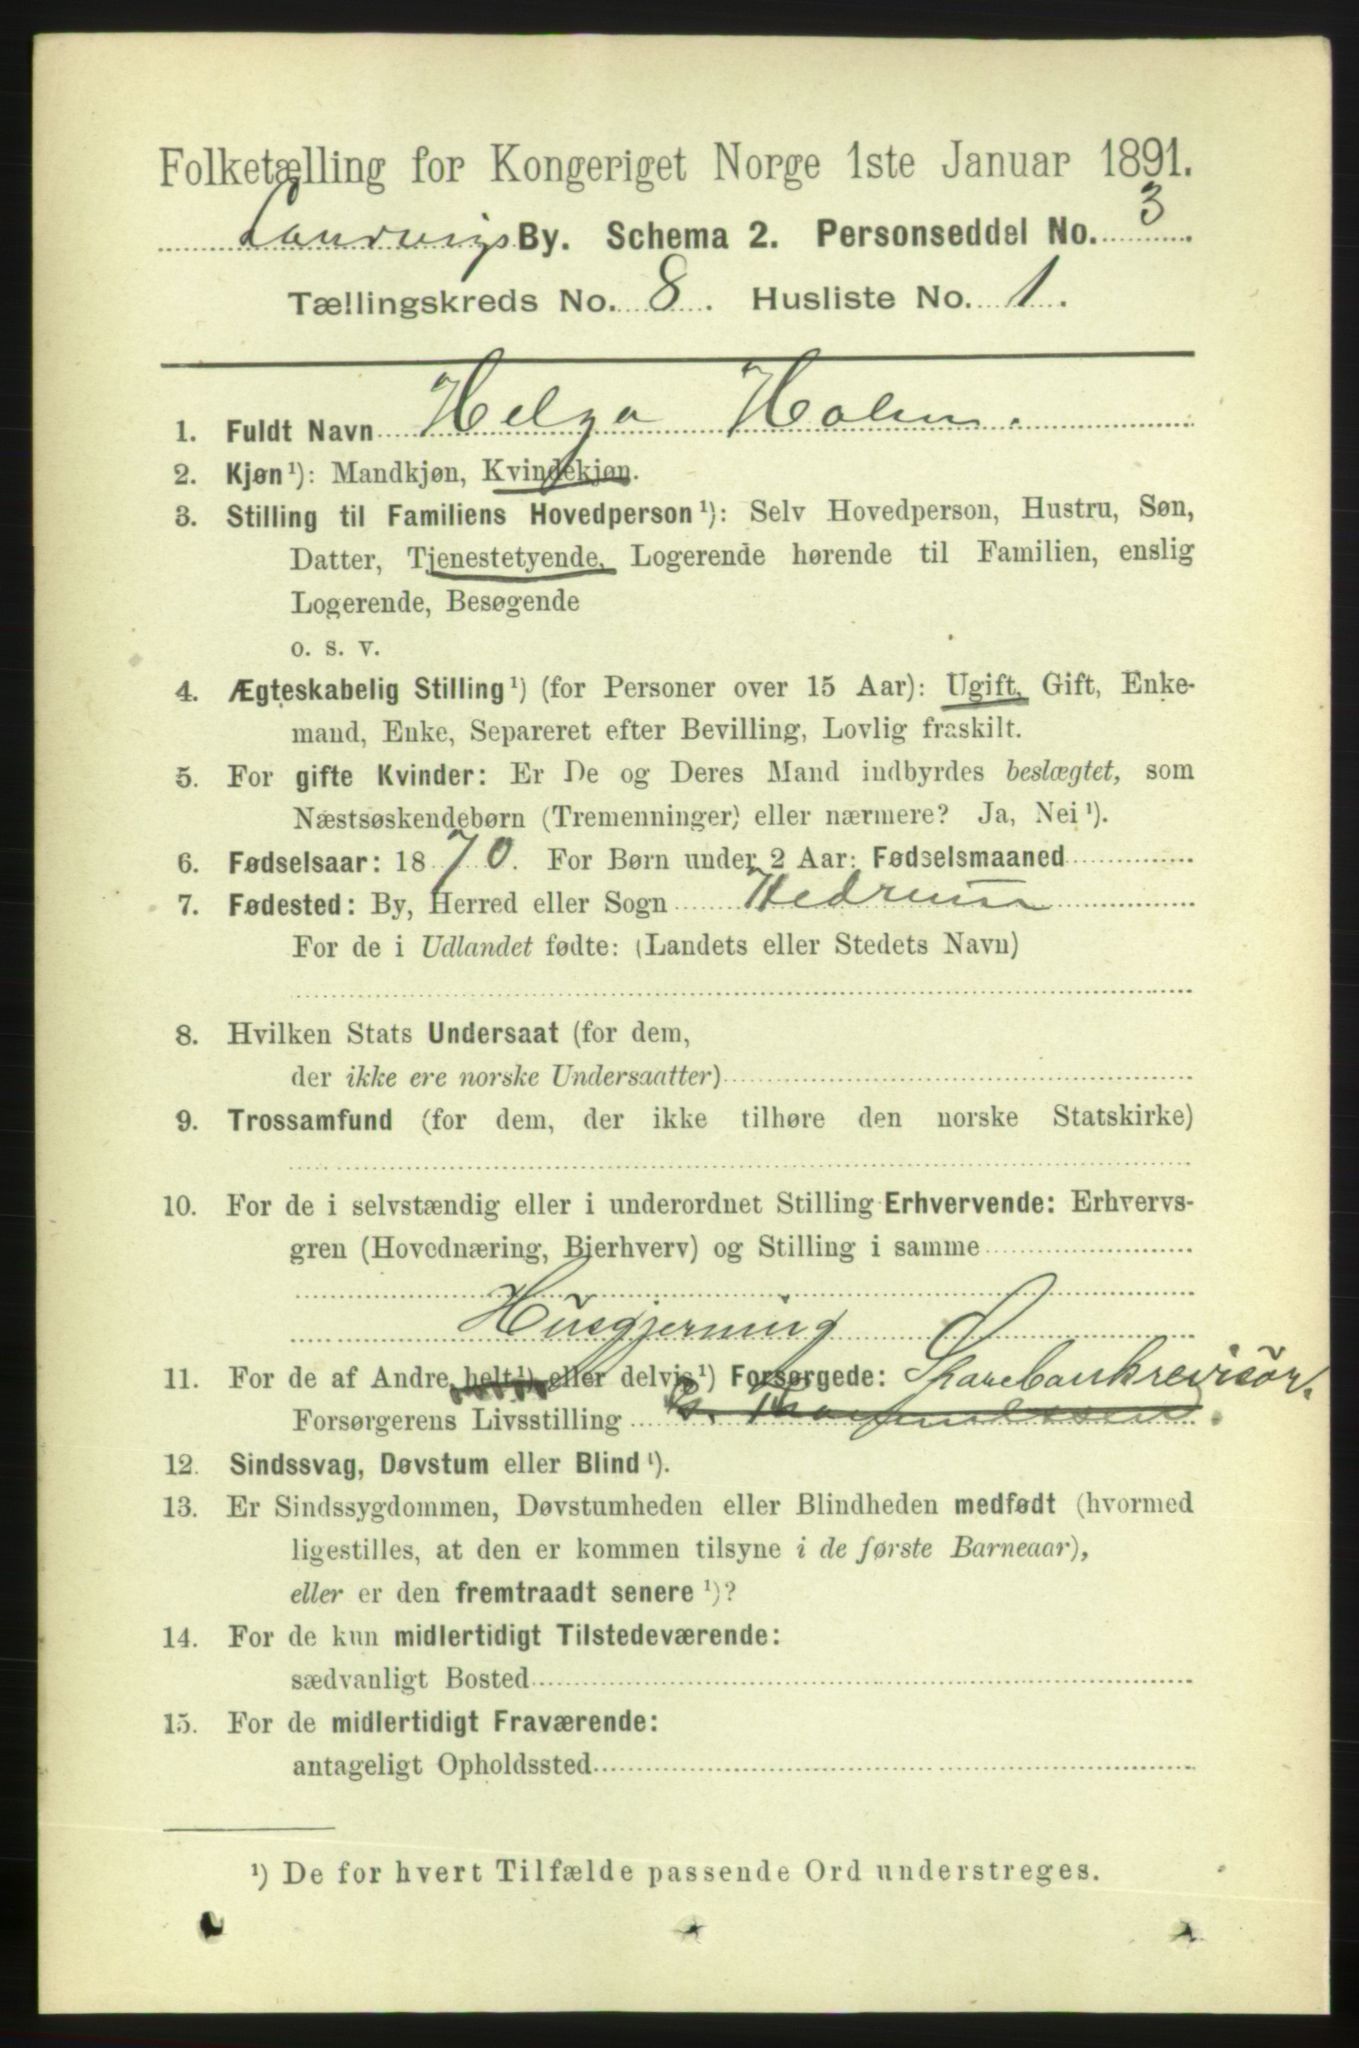 Folketælling for Kongeriget Norge 1ste Januar 1891.
Laurvigs By. Schema 2. Personseddel No. 3
Tællingskreds No. 8. Husliste No. 1.
1. Fuldt Navn Helga Holm.
2. Kjøn¹): Mandkjøn, Kvindekjøn.
3. Stilling til Familiens Hovedperson¹): Selv Hovedperson, Hustru, Søn,
Datter, Tjenestetyende, Logerende hørende til Familien, enslig
Logerende, Besøgende
o. s. v.
4. Ægteskabelig Stilling¹) (for Personer over 15 Aar): Ugift, Gift, Enke-
mand, Enke, Separeret efter Bevilling, Lovlig fraskilt.
5. For gifte Kvinder: Er De og Deres Mand indbyrdes beslægtet, som
Næstsøskendebørn (Tremenninger) eller nærmere? Ja, Nei¹).
6. Fødselsaar: 1870. For Børn under 2 Aar: Fødselsmaaned
7. Fødested: By, Herred eller Sogn Hedrum
For de i Udlandet fødte: (Landets eller Stedets Navn)
8. Hvilken Stats Undersaat (for dem,
der ikke ere norske Undersaatter)
9. Trossamfund (for dem, der ikke tilhøre den norske Statskirke)
10. For de i selvstændig eller i underordnet Stilling Erhvervende: Erhvervs-
gren (Hovednæring, Bierhverv) og Stilling i samme
Husgjerning
11. For de af Andre helt¹) eller delvis¹) Forsørgede: Sparebankrevisör.
Forsørgerens Livsstilling
12. Sindssvag, Døvstum eller Blind¹).
13. Er Sindssygdommen, Døvstumheden eller Blindheden medfødt (hvormed
ligestilles, at den er kommen tilsyne i de første Barneaar),
eller er den fremtraadt senere¹)?
14. For de kun midlertidigt Tilstedeværende:
sædvanligt Bosted
15. For de midlertidigt Fraværende:
antageligt Opholdssted
¹) De for hvert Tilfælde passende Ord understreges.